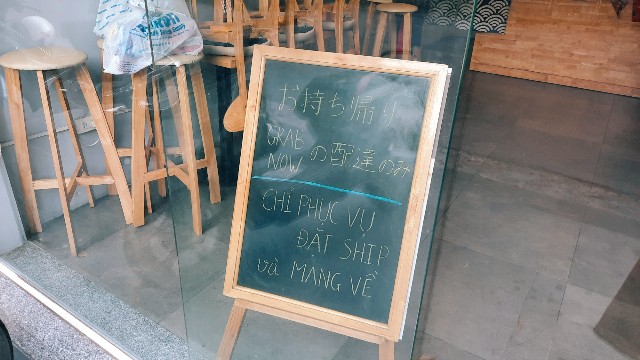 お持ち帰り
GRAB
NOW の配達のみ
CHỈ PHỤC VỤ
ĐẶT SHIP
và MANG VỀ